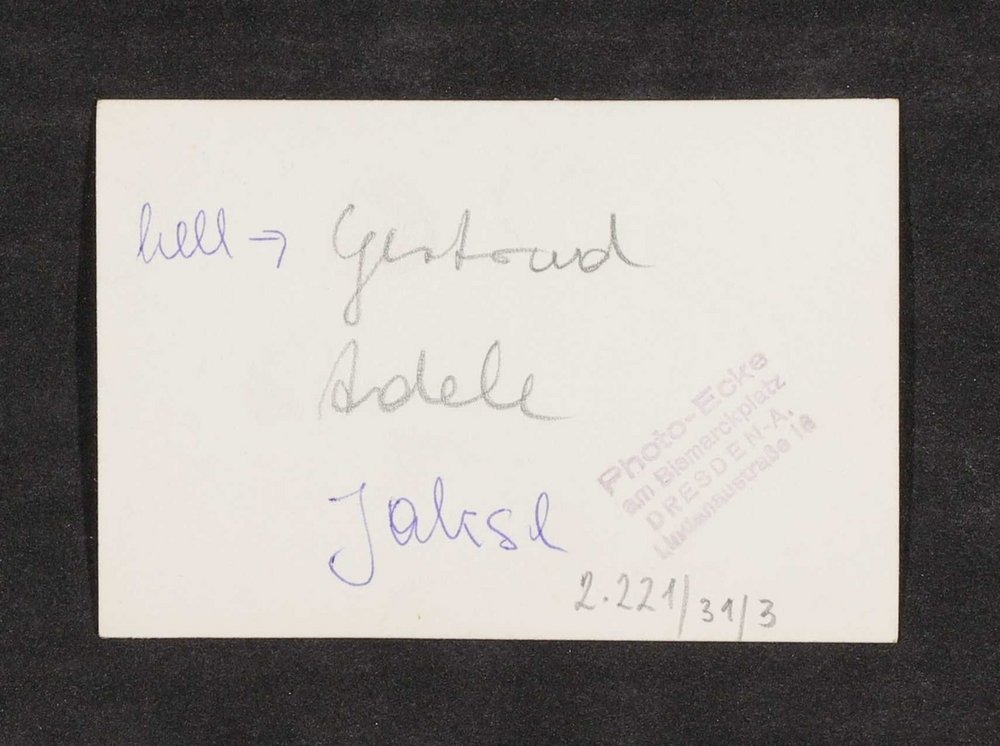 hell → Gertraud
Adele
Jakse
Photo-Ecke
am Bismarckplatz
DRESDEN-A.
Lindenaustraße 16
2.221/31/3